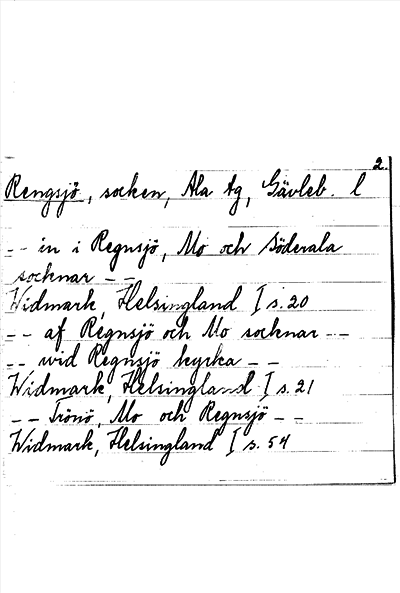 2.
Rengsjö, socken, Ala tg, Gävleb. l
-- in i Regnsjö, Mo och Söderala
socknar --
Widmark, Helsingland I s. 20
-- af Regnsjö och Mo socknar --
-- wid Regnsjö kyrka --
Widmark, Helsingland I s. 21
-- Trönö, Mo och Regnsjö --
Widmark, Helsingland I s. 54